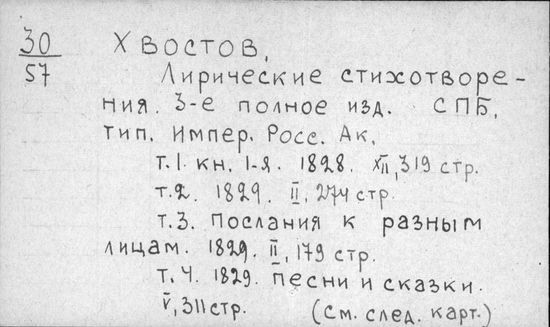 30
57
ХВОСТОВ,
Лирические стихотворе-
ния. 3-е полное изд. СПБ,
тип. Импер. Росс. Ак,
т.1. кн. 1-я. 1828. XII, 319 стр.
т.2. 1829. II, 274 стр.
т.3. Послания к разным
лицам. 1829. II, 179 стр.
т.4. 1829. Песни и сказки.
V, 311 стр. (См. след. карт.)